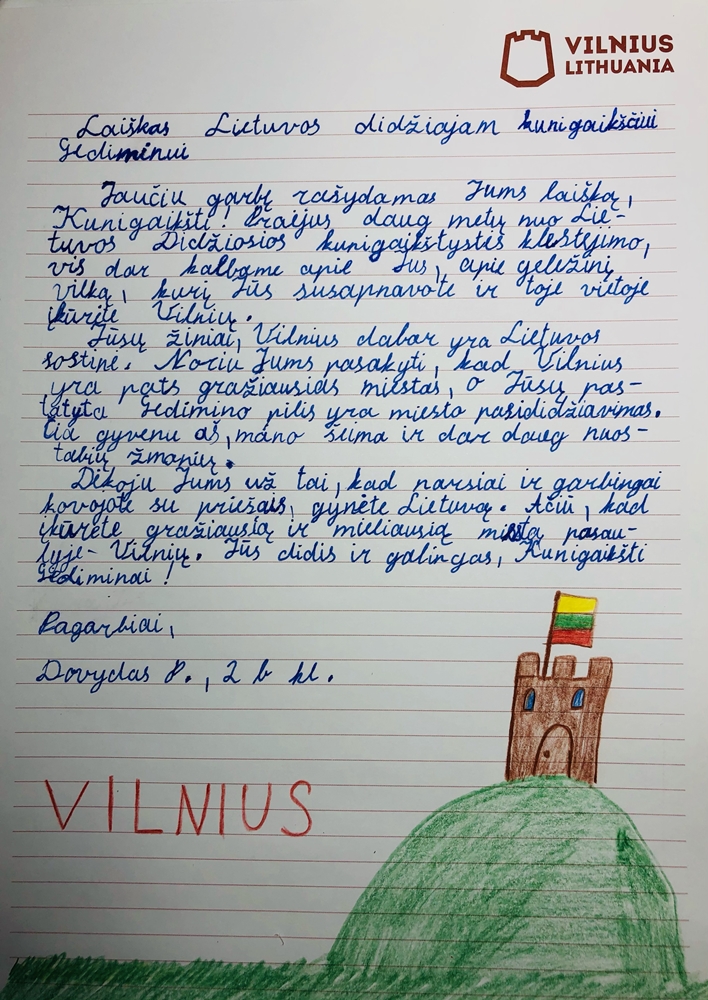 VILNIUS
LITHUANIA
Laiškas Lietuvos didžiajam kunigaikščiui
Gediminui
Jaučiu garbę rašydamas Jums laišką,
Kunigaikšti! Praėjus daug metų nuo Lie-
tuvos Didžiosios kunigaikštystės klestėjimo,
vis dar kalbame apie Jus, apie geležinį
vilką, kurį Jūs susapnavote ir toje vietoje
įkūrėte Vilnių.
Jūsų žiniai, Vilnius dabar yra Lietuvos
sostinė. Noriu Jums pasakyti, kad Vilnius
yra pats gražiausias miestas, o Jūsų pas-
tatyta Gedimino pilis yra miesto pasididžiavimas.
Čia gyvenu aš, mano šeima ir dar daug nuos-
tabių žmonių.
Dėkoju Jums už tai, kad narsiai ir garbingai
kovojote su priešais, gynėte Lietuvą. Ačiū, kad
įkūrėte gražiausią ir mieliausią miestą pasau-
lyje- Vilnių. Jūs didis ir galingas, Kunigaikšti
Gediminai!
Pagarbiai,
Dovydas P., 2 b kl.
VILNIUS